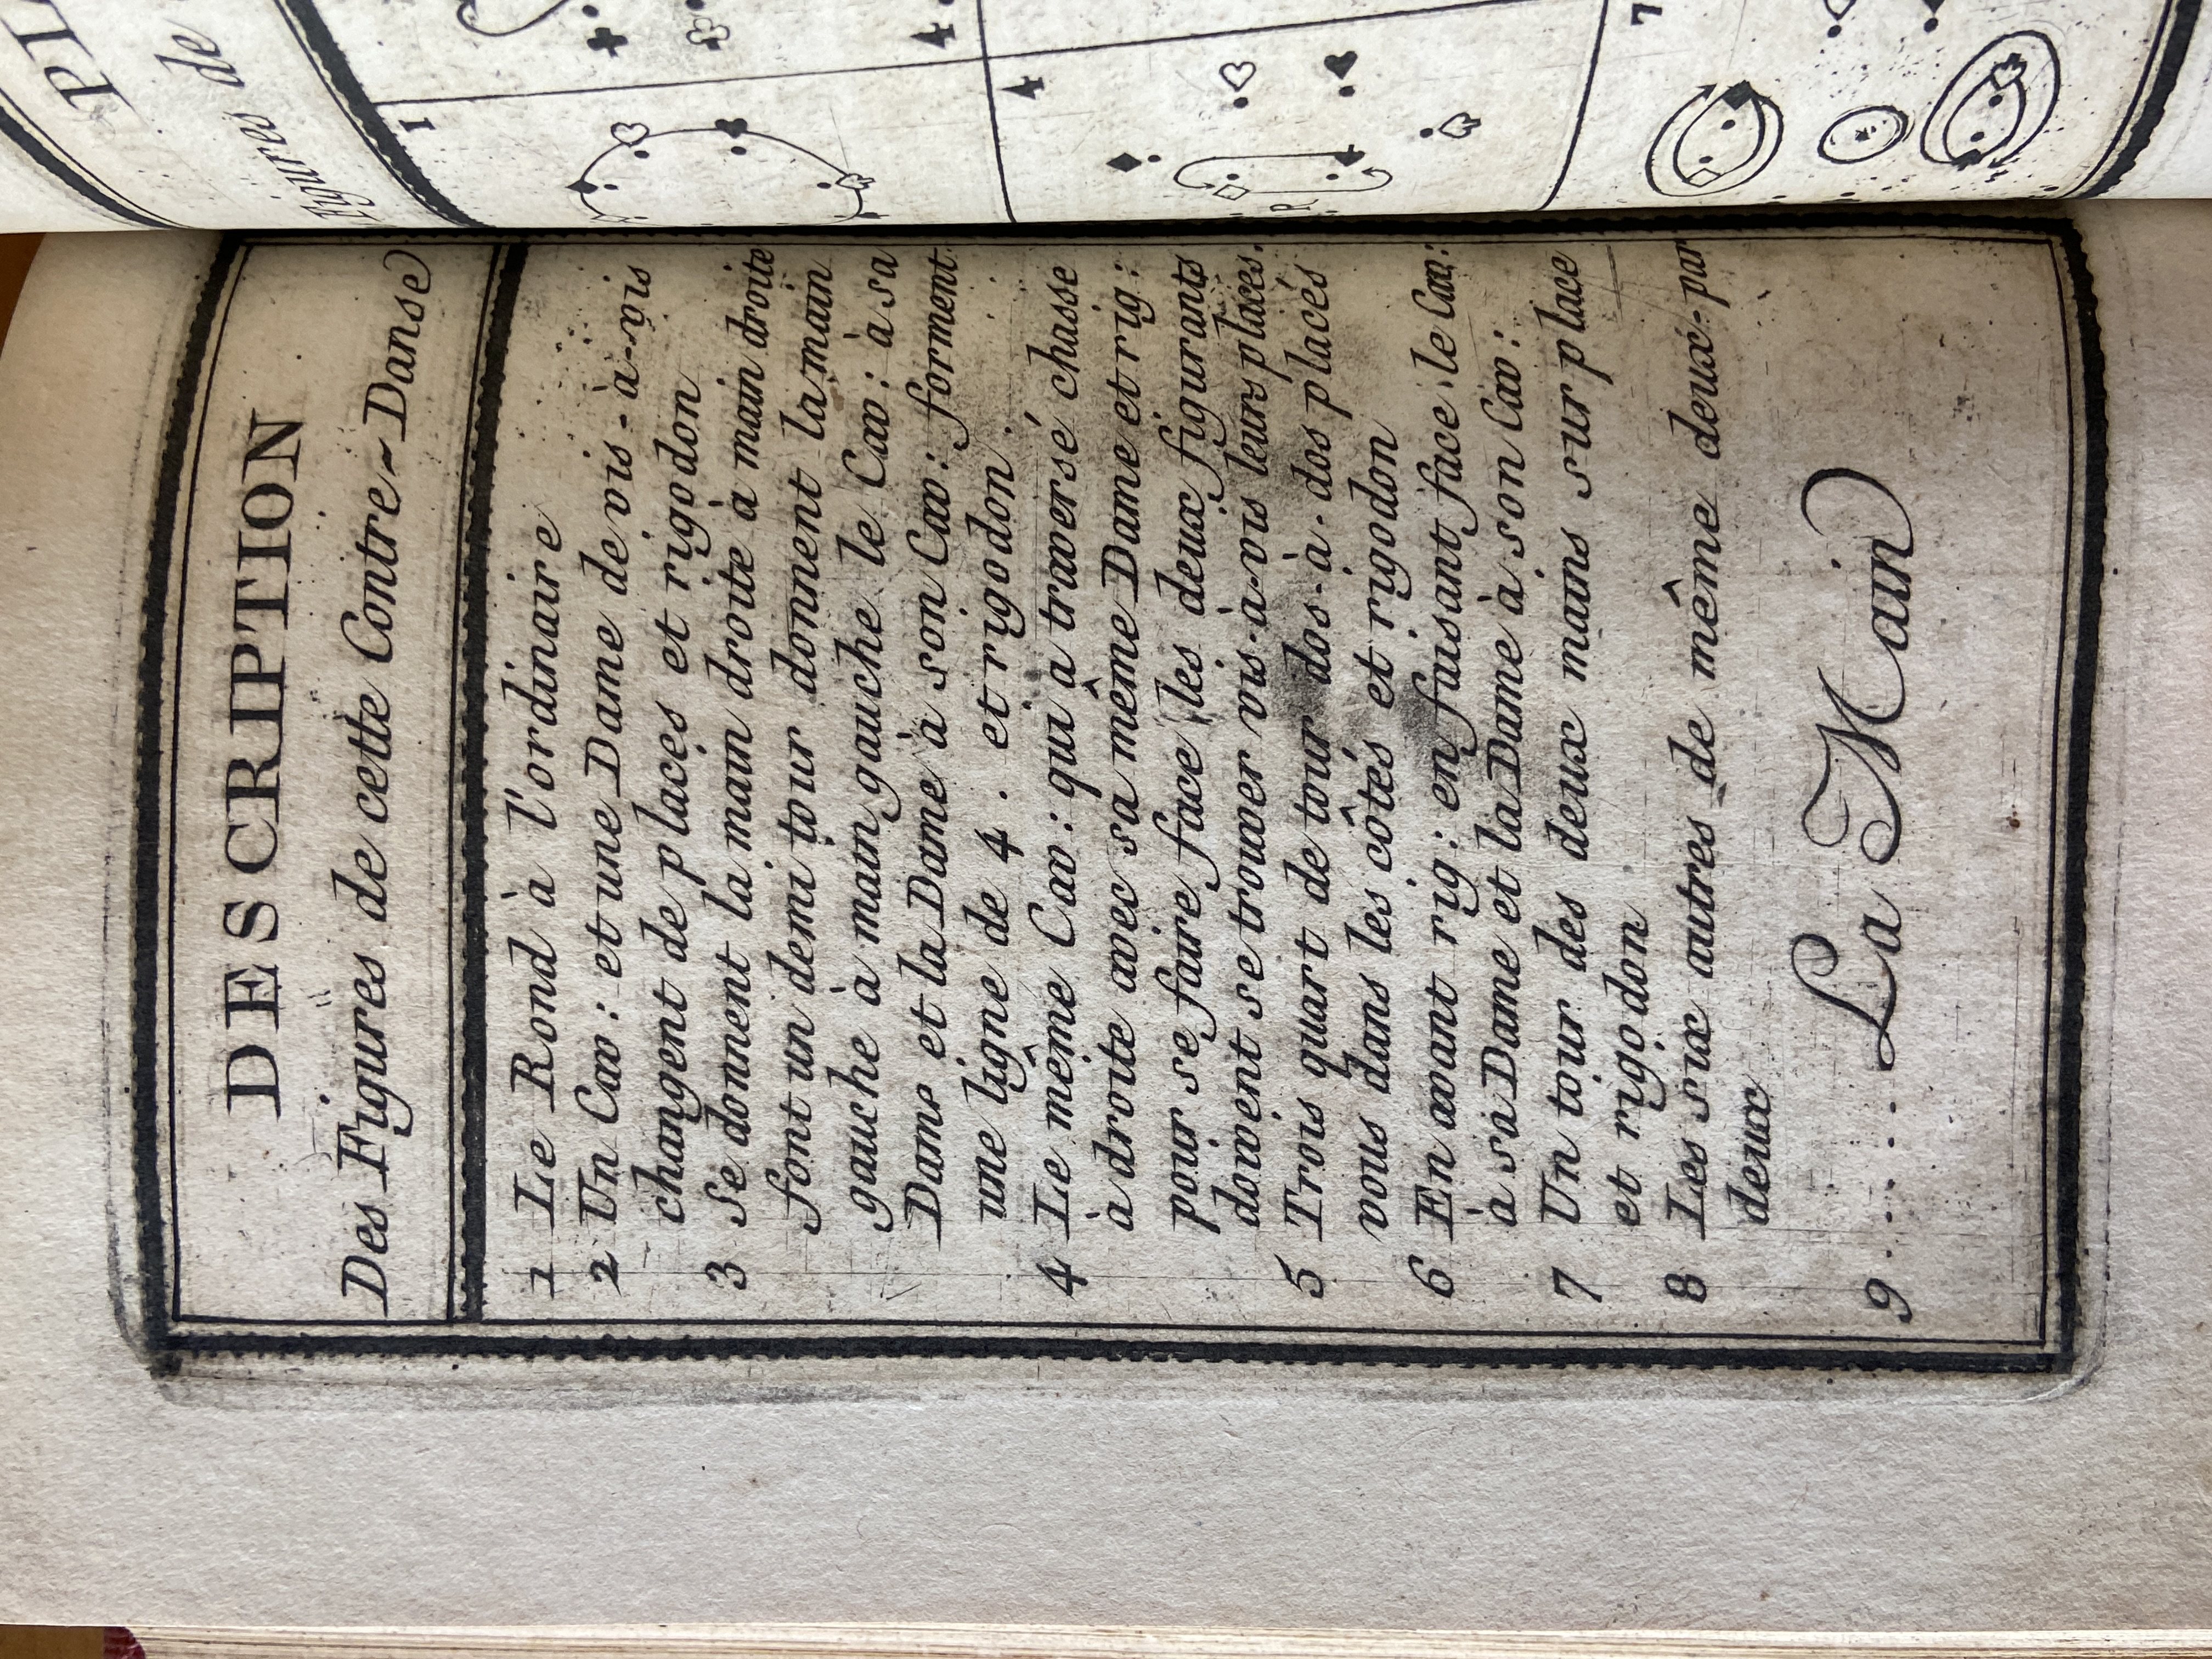 DESCRIPTION
Des Figures de cette Contre-Danse
1 Le Rond à l'ordinaire
2 Un Cav: et une Dame de vis-à-vis
changent de places et rigodon
3 Se donnent la main droite à main droite
font un demi tour donnent la main
gauche à main gauche le Cav: à sa
Dame et la Dame à son Cav: forment
une ligne de 4. et rigodon.
4 Le même Cav: qui a traversé chasse
à droite avec sa même Dame et rig:
pour se faire face les deux figurants
doivent se trouver vis-à-vis leurs places.
5 Trois quart de tour dos-à-dos placés
vous dans les côtés et rigodon
6 En avant rig: en faisant face le Cav:
à sa Dame et la Dame à son Cav:
7 Un tour des deux mains sur place
et rigodon
8 Les six autres de même deux-par
deux
9..... La Main
PL
Figures de
1
4
R
7